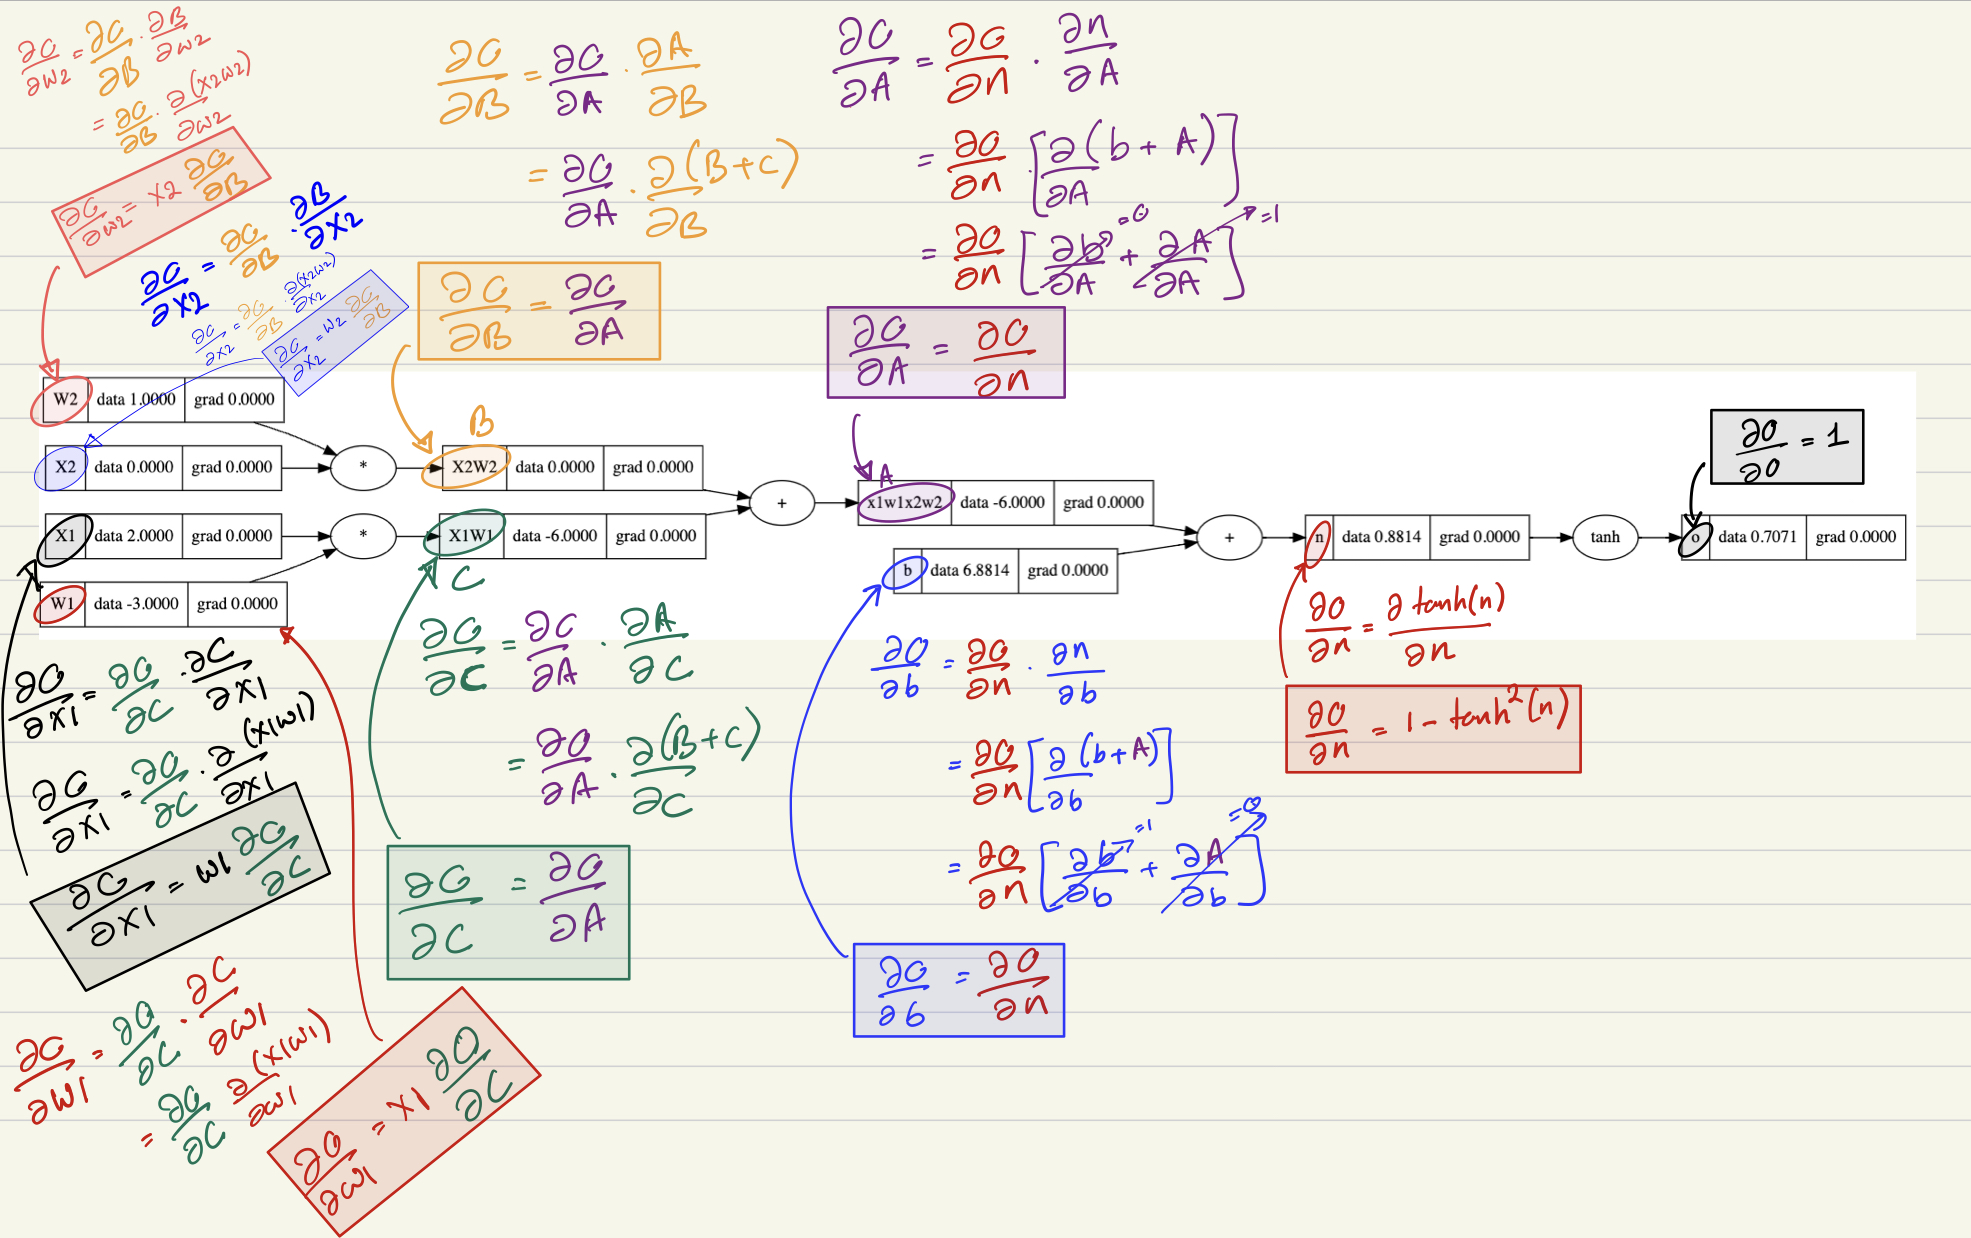 ∂O/∂w2 = ∂O/∂B · ∂B/∂w2
= ∂O/∂B · ∂(x2w2)/∂w2
∂O/∂w2 = x2 ∂O/∂B
∂O/∂x2 = ∂O/∂B · ∂B/∂x2
∂O/∂x2 = ∂O/∂B · ∂(x2w2)/∂x2
∂O/∂x2 = w2 ∂O/∂B
∂O/∂B = ∂O/∂A · ∂A/∂B
= ∂O/∂A · ∂(B+C)/∂B
∂O/∂B = ∂O/∂A
∂O/∂A = ∂O/∂n · ∂n/∂A
= ∂O/∂n · [∂(b + A)/∂A]
= ∂O/∂n [∂b/∂A =0 + ∂A/∂A =1]
∂O/∂A = ∂O/∂n
∂O/∂O = 1
W2 data 1.0000 grad 0.0000
X2 data 0.0000 grad 0.0000
*
B
X2W2 data 0.0000 grad 0.0000
X1 data 2.0000 grad 0.0000
*
X1W1 data -6.0000 grad 0.0000
C
W1 data -3.0000 grad 0.0000
+
A
x1w1x2w2 data -6.0000 grad 0.0000
b data 6.8814 grad 0.0000
+
n data 0.8814 grad 0.0000
tanh
o data 0.7071 grad 0.0000
∂O/∂x1 = ∂O/∂C · ∂C/∂x1
∂O/∂x1 = ∂O/∂C · ∂(x1w1)/∂x1
∂O/∂x1 = w1 ∂O/∂C
∂O/∂w1 = ∂O/∂C · ∂C/∂w1
= ∂O/∂C ∂(x1w1)/∂w1
∂O/∂w1 = x1 ∂O/∂C
∂O/∂C = ∂O/∂A · ∂A/∂C
= ∂O/∂A · ∂(B+C)/∂C
∂O/∂C = ∂O/∂A
∂O/∂b = ∂O/∂n · ∂n/∂b
= ∂O/∂n [∂(b+A)/∂b]
= ∂O/∂n [∂b/∂b =1 + ∂A/∂b =0]
∂O/∂b = ∂O/∂n
∂O/∂n = ∂tanh(n)/∂n
∂O/∂n = 1 - tanh²(n)